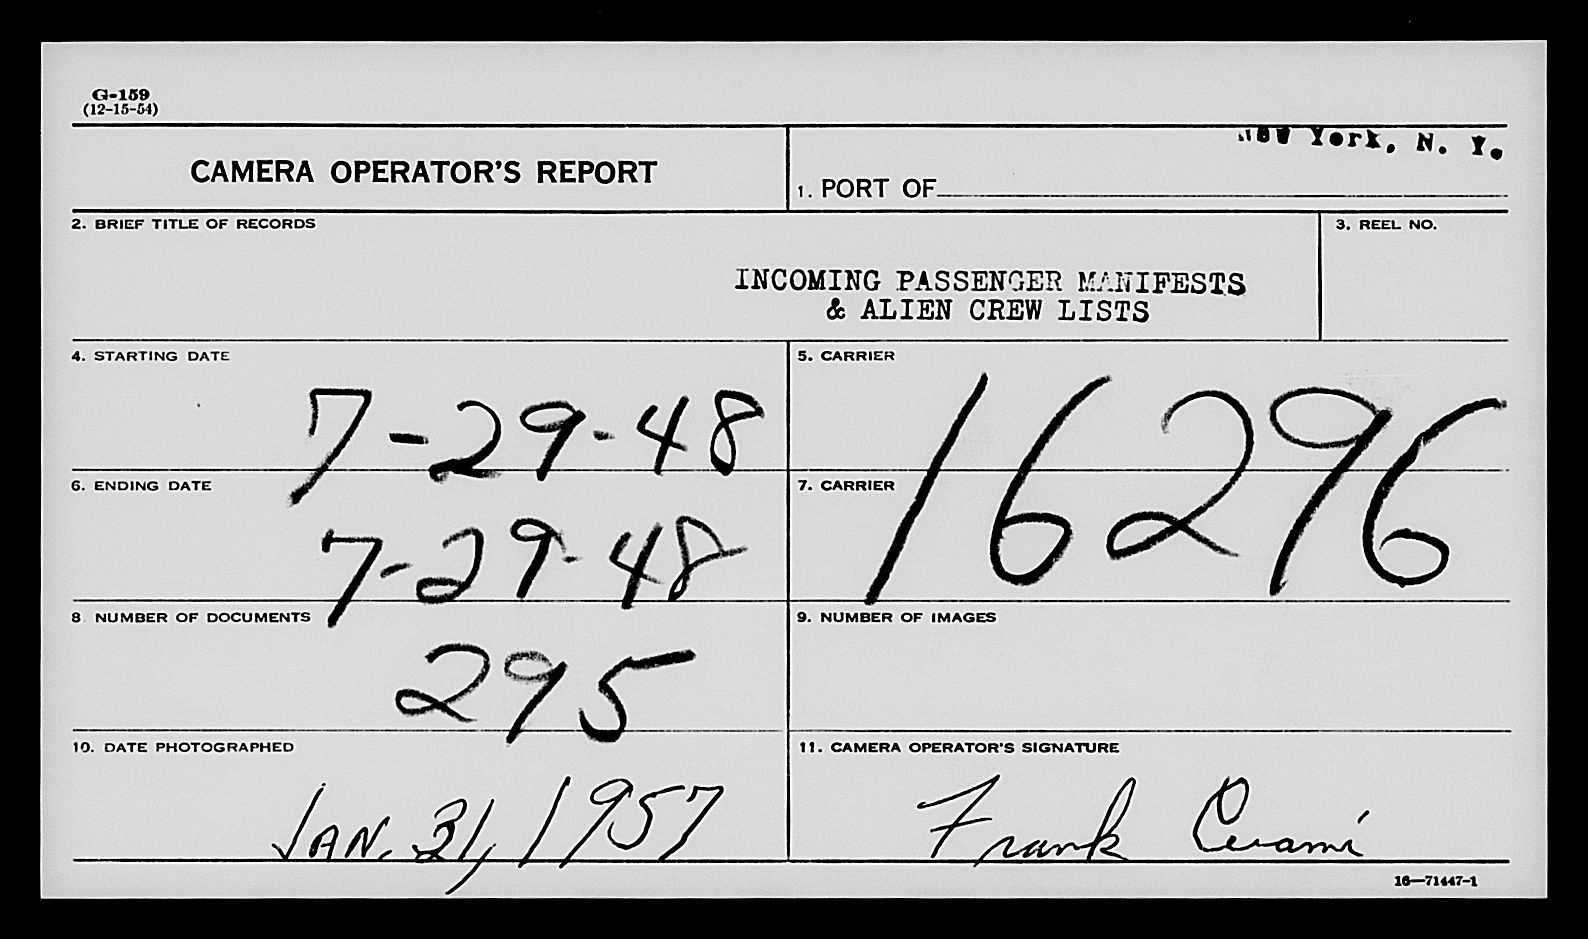 G-159
(12-15-54)
CAMERA OPERATOR'S REPORT
New York, N. Y.
1. PORT OF
2. BRIEF TITLE OF RECORDS
3. REEL NO.
INCOMING PASSENGER MANIFESTS
& ALIEN CREW LISTS
4. STARTING DATE
7-29-48
5. CARRIER
16296
6. ENDING DATE
7-29-48
7. CARRIER
8 NUMBER OF DOCUMENTS
295
9. NUMBER OF IMAGES
10. DATE PHOTOGRAPHED
JAN. 31, 1957
11. CAMERA OPERATOR'S SIGNATURE
Frank
16—71447-1